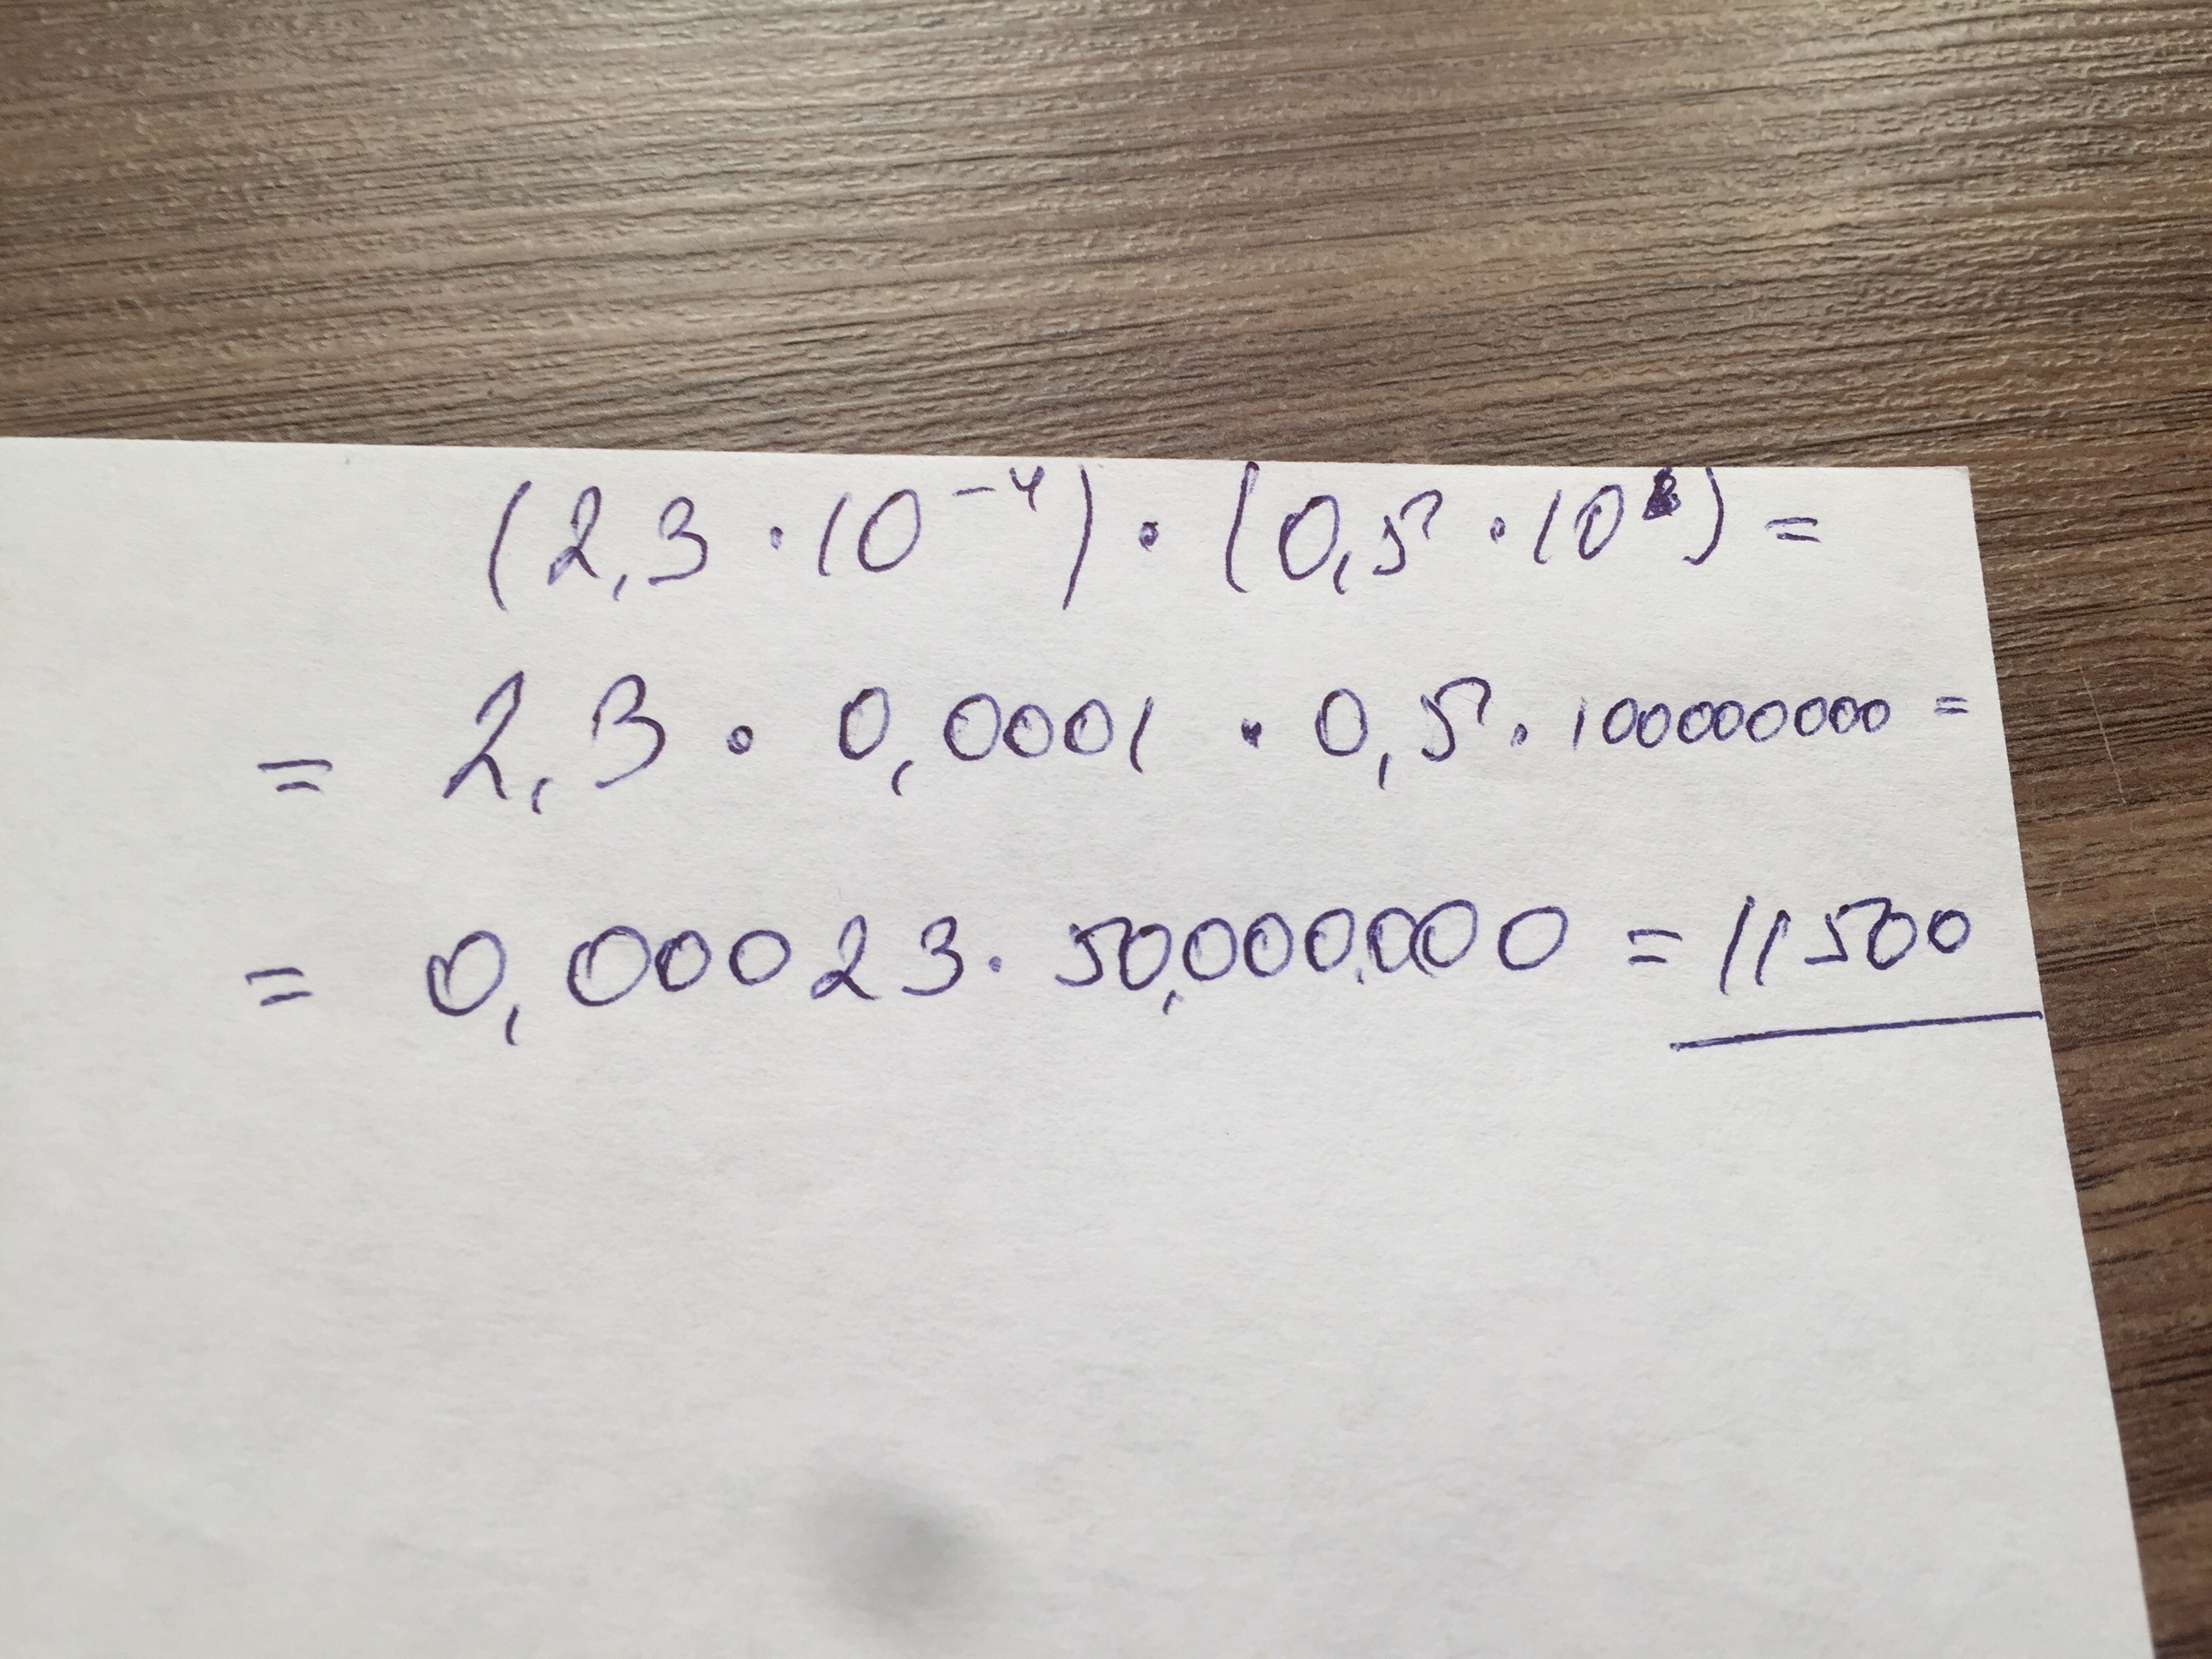 (2,3 · 10⁻⁴) · (0,5 · 10⁸) =
= 2,3 · 0,0001 · 0,5 · 100000000 =
= 0,00023 · 50,000.000 = 11500